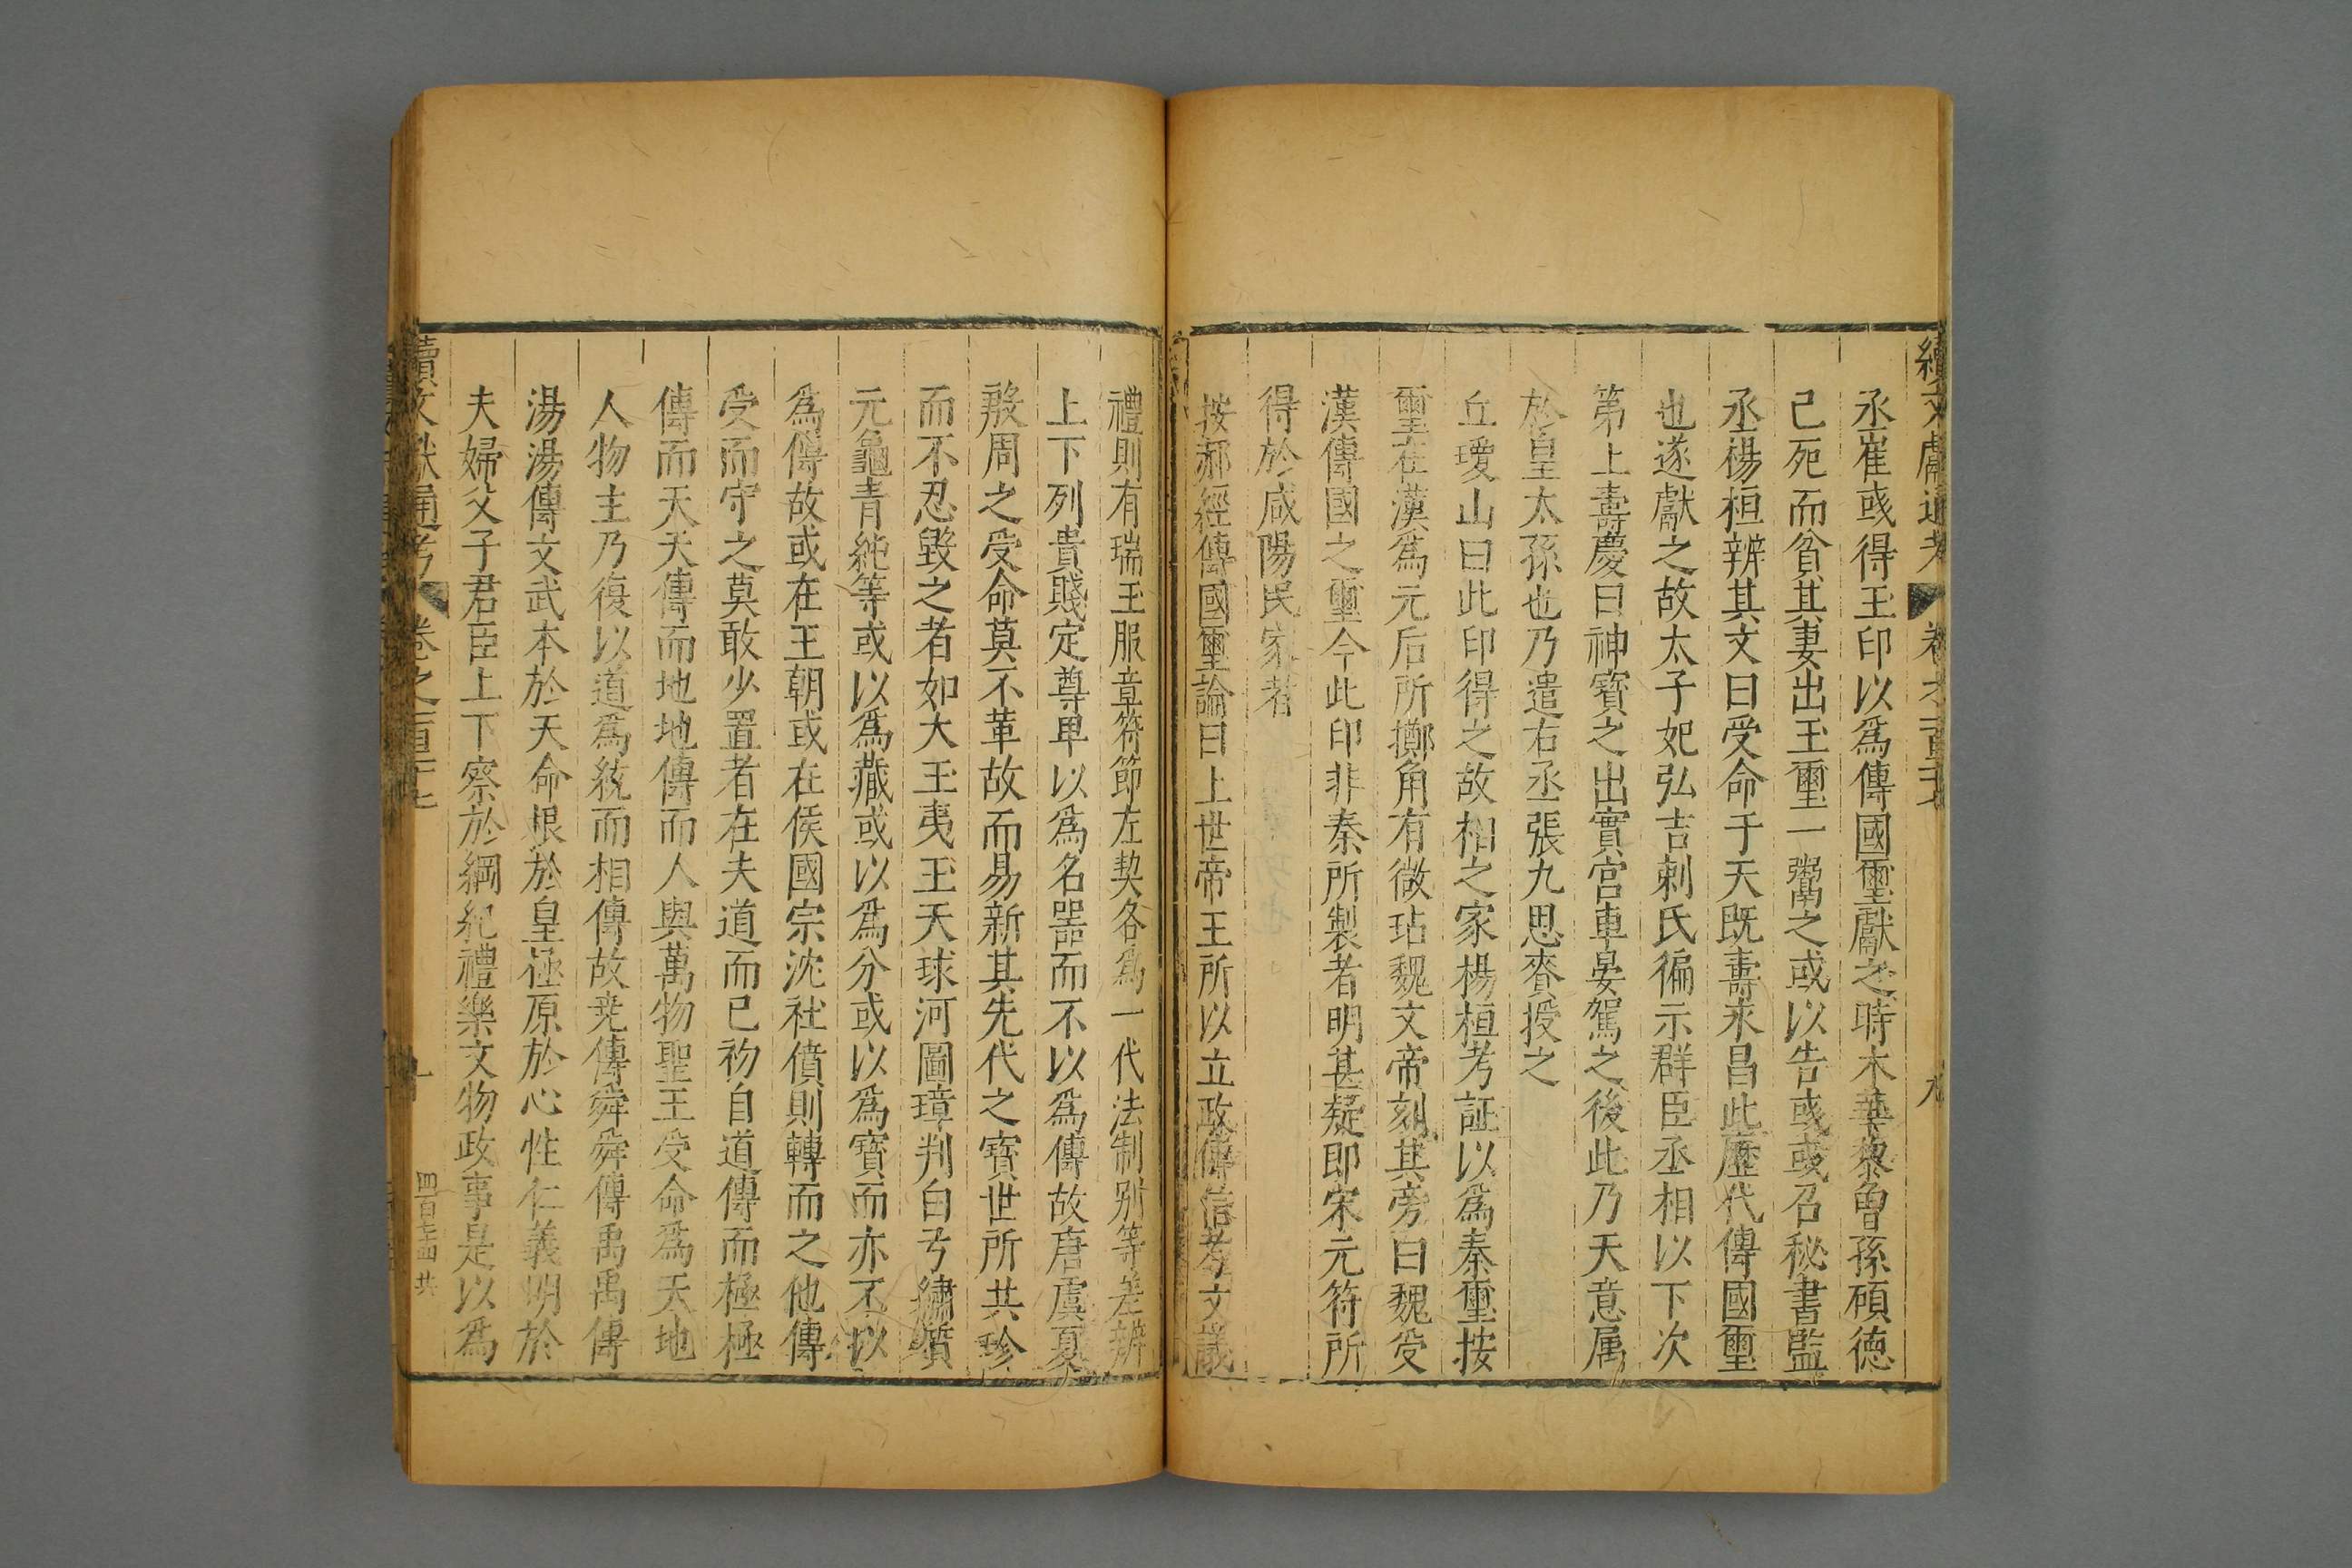 續文獻通考 卷之一百十七 九
丞崔彧得玉印以爲傳國璽獻之時木華黎曾孫碩德
已死而貧其妻出玉璽一鬻之或以告彧彧召秘書監
丞楊桓辨其文曰受命于天既壽永昌此歷代傳國璽
也遂獻之故太子妃弘吉剌氏徧示群臣丞相以下次
第上壽慶曰神寶之出實宮車晏駕之後此乃天意属
於皇太孫也乃遣右丞張九思賫授之
丘瓊山曰此印得之故相之家楊桓考証以爲秦璽按
璽在漢爲元后所擲角有微玷魏文帝刻其旁曰魏受
漢傳國之璽今此印非秦所製者明甚疑即宋元符所
得於咸陽民家者
按郝經傳國璽論曰上世帝王所以立政傳信考文議
禮則有瑞玉服章符節左契各爲一代法制别等差辨
上下列貴賤定尊卑以爲名噐而不以爲傳故唐虞夏
殷周之受命莫不革故而易新其先代之寳世所共珍
而不忍毀之者如大玉夷玉天球河圖璋判白弓繡質
元龜青純等或以爲藏或以爲分或以爲寳而亦不以
爲傳故或在王朝或在侯國宗沈社僨則轉而之他傳
受而守之莫敢少置者在夫道而已初自道傳而極極
傳而天天傳而地地傳而人與萬物聖王受命爲天地
人物主乃復以道爲統而相傳故尭傳舜舜傳禹禹傳
湯湯傳文武本於天命根於皇極原於心性仁義明於
夫婦父子君臣上下察於綱紀禮樂文物政事是以爲
續文獻通考 卷之一百十七